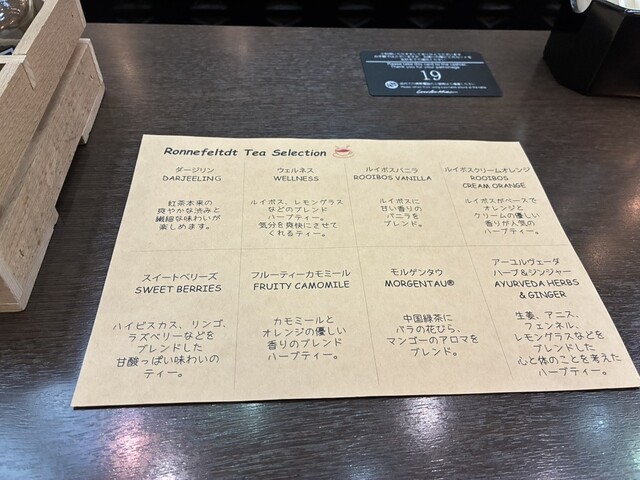 Please take this card to the cashier.
Thank you for your patronage.
19
Ronnefeltdt Tea Selection
ダージリン
DARJEELING
紅茶本来の
爽やかな渋みと
繊細な味わいが
楽しめます。
ウェルネス
WELLNESS
ルイボス、レモングラス
などのブレンド
ハーブティー。
気分を爽快にさせて
くれるティー。
ルイボスバニラ
ROOIBOS VANILLA
ルイボスに
甘い香りの
バニラを
ブレンド。
ルイボスクリームオレンジ
ROOIBOS
CREAM ORANGE
ルイボスがベースで
オレンジと
クリームの優しい
香りが人気の
ハーブティー。
スイートベリーズ
SWEET BERRIES
ハイビスカス、リンゴ、
ラズベリーなどを
ブレンドした
甘酸っぱい味わいの
ティー。
フルーティーカモミール
FRUITY CAMOMILE
カモミールと
オレンジの優しい
香りのブレンド
ハーブティー。
モルゲンタウ
MORGENTAU®
中国緑茶に
バラの花びら、
マンゴーのアロマを
ブレンド。
アーユルヴェーダ
ハーブ&ジンジャー
AYURVEDA HERBS
& GINGER
生姜、アニス、
フェンネル、
レモングラスなどを
ブレンドした
心と体のことを考えた
ハーブティー。